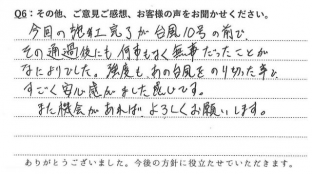 Q6：その他、ご意見ご感想、お客様の声をお聞かせください。
今回の施工完了が台風10号の前で、
その通過後にも何事もなく無事だったことが
なによりでした。強度もあの台風をのり切った事で
すごく安心感がました思いです。
また機会があればよろしくお願いします。
ありがとうございました。今後の方針に役立たせていただきます。